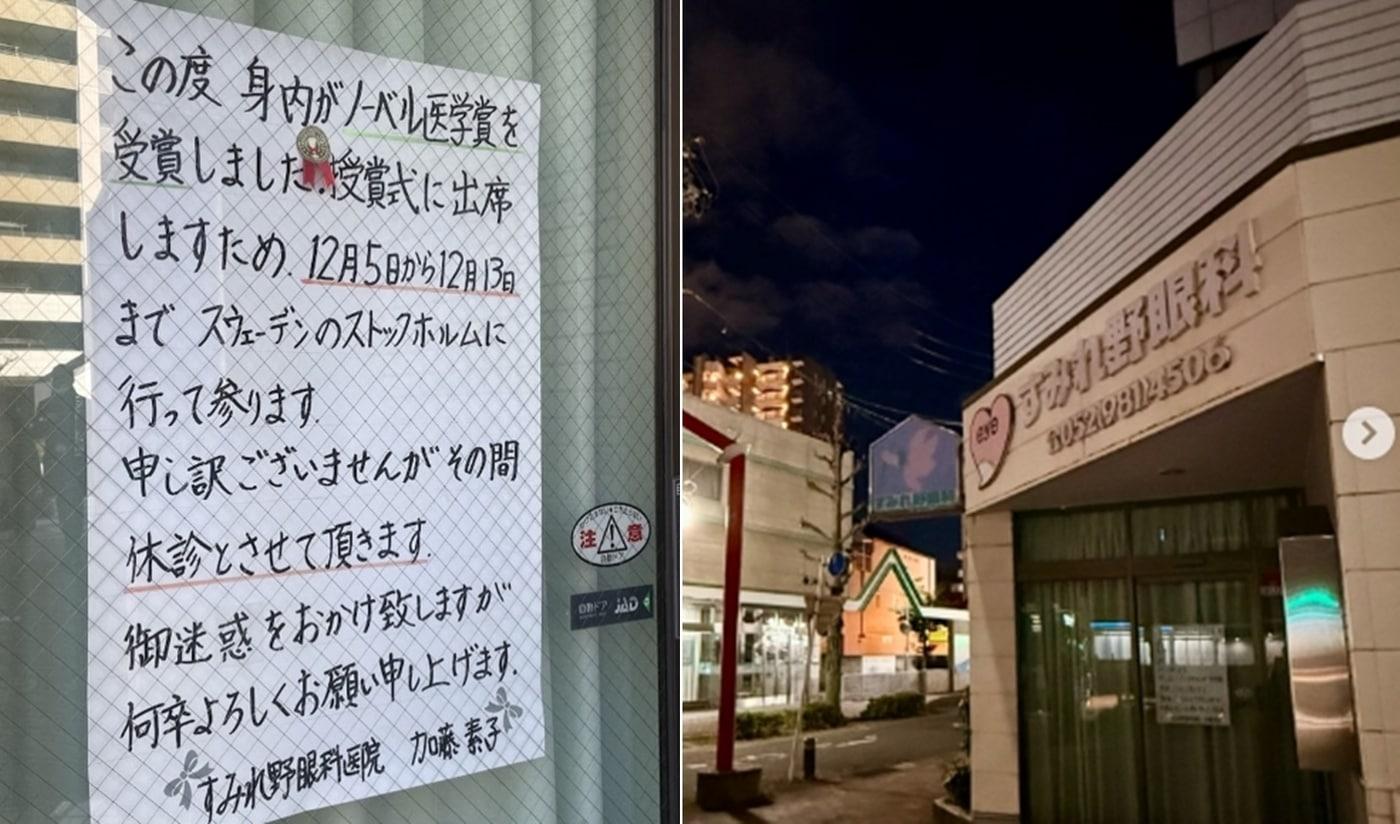 この度 身内がノーベル医学賞を
受賞しました.授賞式に出席
しますため.12月5日から12月13日
まで スウェーデンのストックホルムに
行って参ります.
申し訳ございませんが その間
休診とさせて頂きます.
御迷惑をおかけ致しますが
何卒よろしくお願い申し上げます.
すみれ野眼科医院 加藤 素子
注意
自動ドア JAD
すみれ野眼科
eye
☎052(981)4506
すみれ野眼科